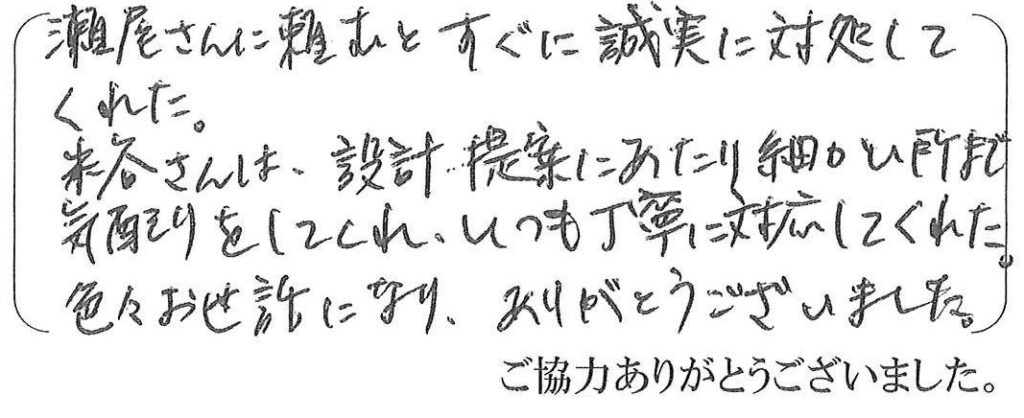 瀬尾さんに頼むと すぐに 誠実に対処して
くれた。
米谷さんは、設計 提案にあたり細かい所まで
気配りをしてくれ、いつも丁寧に対応してくれた。
色々お世話になり、ありがとうございました。
ご協力ありがとうございました。